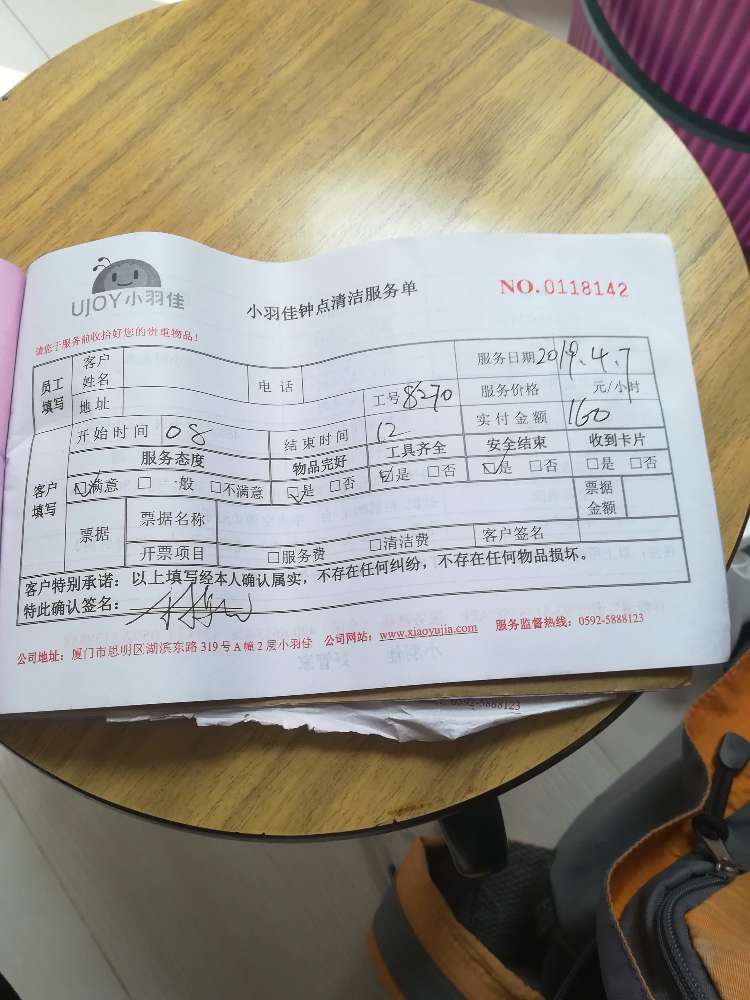 UJOY小羽佳
小羽佳钟点清洁服务单
NO.0118142
请您于服务前收拾好您的贵重物品！
员工填写 客户姓名 电话 服务日期 2019.4.7
地址 工号 8270 服务价格 元/小时
客户填写 开始时间 08 结束时间 12 实付金额 160
服务态度 物品完好 工具齐全 安全结束 收到卡片
☑满意 □一般 □不满意 ☑是 □否 ☑是 □否 ☑是 □否 □是 □否
票据 票据名称 票据金额
开票项目 □服务费 □清洁费 客户签名
客户特别承诺：以上填写经本人确认属实，不存在任何纠纷，不存在任何物品损坏。
特此确认签名：
公司地址：厦门市思明区湖滨东路319号A幢2层小羽佳 公司网站：www.xiaoyujia.com 服务监督热线：0592-5888123
0592-5888123